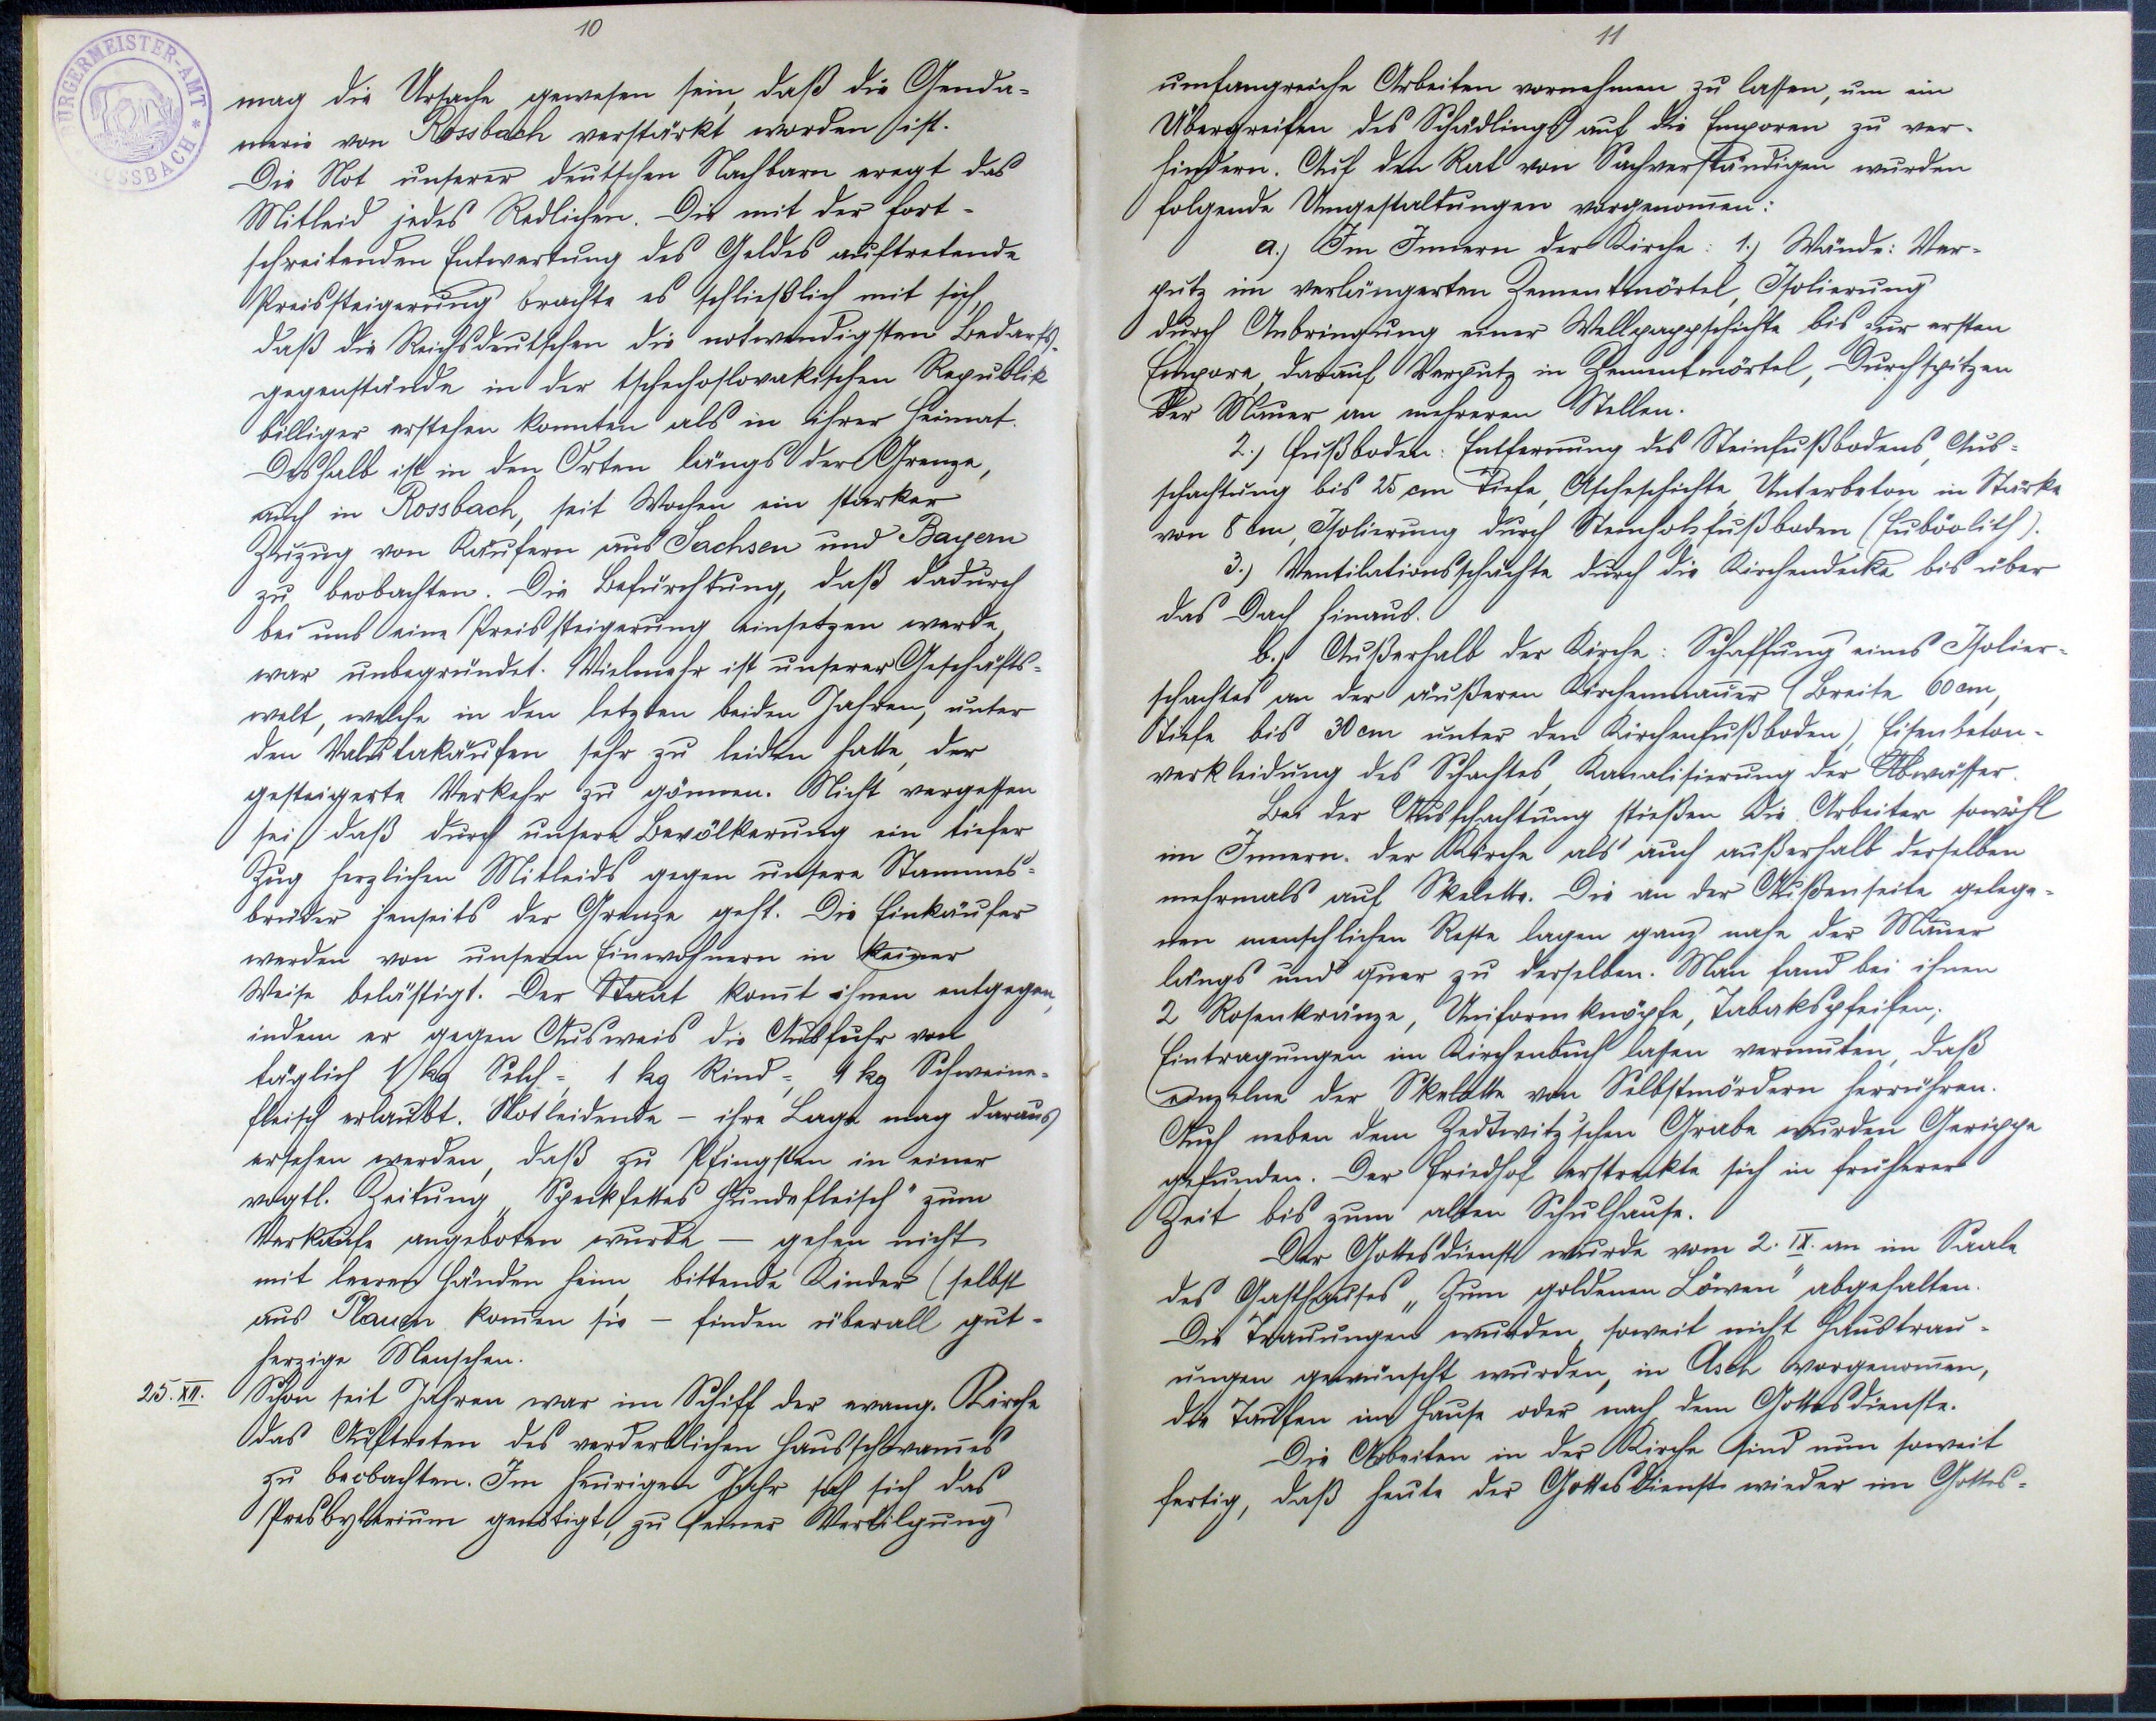 10
BÜRGERMEISTER-AMT * ROSSBACH
mag die Ursache gewesen sein, daß die Genda-
merie von Rossbach verstärkt worden ist.
Die Not unserer deutschen Nachbarn eregt das
Mitleid jedes Redlichen. Die mit der fort-
schreitenden Entwertung des Geldes auftretende
Preissteigerung brachte es schließlich mit sich,
daß die Reichsdeutschen die notwendigsten Bedarfs-
gegenstände in der tschechoslovakischen Republik
billiger erstehen konnten als in ihrer Heimat.
Deshalb ist in den Orten längs der Grenze,
auch in Rossbach, seit Wochen ein starker
Zuzug von Käufern aus Sachsen und Bayern
zu beobachten. Die Befürchtung, daß dadurch
bei uns eine Preissteigerung einsetzen werde,
war unbegründet. Vielmehr ist unserer Geschäfts-
welt, welche in den letzten beiden Jahren, unter
den Valutakäufen sehr zu leiden hatte, der
gesteigerte Verkehr zu gönnen. Nicht vergessen
sei, daß durch unsere Bevölkerung ein tiefer
Zug herzlichen Mitleids gegen unsere Stammes-
brüder jenseits der Grenze geht. Die Einkäufer
werden von unseren Einwohnern in keiner
Weise belästigt. Der Staat kom̄t ihnen entgegen,
indem er gegen Ausweis die Ausfuhr von
täglich 1 kg Selch-, 1 kg Rind-, 1 kg Schweine-
fleisch erlaubt. Notleidende – ihre Lage mag daraus
ersehen werden, daß zu Pfingsten in einer
vogtl. Zeitung „Speckfettes Hundefleisch" zum
Verkaufe angeboten wurde – gehen nicht
mit leeren Händen heim, bittende Kinder (selbst
aus Plauen kom̄en sie – finden überall gut-
herzige Menschen.
25. XII. Schon seit Jahren war im Schiff der evang. Kirche
das Auftreten des verderblichen Hausschwam̄es
zu beobachten. Im heurigen Jahr sah sich das
Presbyterium genötigt, zu seiner Vertilgung
11
umfangreiche Arbeiten vornehmen zu lassen, um ein
Übergreifen des Schädlings auf die Emporen zu ver-
hindern. Auf den Rat von Sachverständigen wurden
folgende Umgestaltungen vorgenom̄en:
a.) Im Innern der Kirche: 1.) Wände: Ver-
putz im verlängerten Zementmörtel, Isolierung
durch Anbringung einer Wellpappschichte bis zur ersten
Empore, darauf Verputz in Zementmörtel, Durchspitzen
der Mauer an mehreren Stellen.
2.) Fußboden: Entfernung des Steinfußbodens, Aus-
schachtung bis 25 cm Tiefe, Ascheschichte, Unterbeton in Stärke
von 8 cm, Isolierung durch Steinholzfußboden (Euböolith).
3.) Ventilationsschächte durch die Kirchendecke bis über
das Dach hinaus.
b.) Außerhalb der Kirche: Schaffung eines Isolier-
schachtes an der äußeren Kirchenmauer (Breite 60 cm,
Tiefe bis 30 cm unter den Kirchenfußboden), Eisenbeton-
verkleidung des Schachtes, Kanalisierung der Abwässer.
Bei der Ausschachtung stießen die Arbeiter sowohl
im Innern. der Kirche als auch außerhalb derselben
mehrmals auf Skelette. Die an der Außenseite gelege-
nen menschlichen Reste lagen ganz nahe der Mauer
längs und quer zu derselben. Man fand bei ihnen
2 Rosenkränze, Uniformknöpfe, Tabakspfeifen;
Eintragungen im Kirchenbuch lassen vermuten, daß
einzelne der Skelette von Selbstmördern herrühren.
Auch neben dem Zedtwitz'schen Grabe wurden Gerippe
gefunden. Der Friedhof erstreckte sich in früherer
Zeit bis zum alten Schulhause.
Der Gottesdienst wurde vom 2. IX. an im Saale
des Gasthauses „Zum goldenen Löwen" abgehalten.
Die Trauungen wurden, soweit nicht Haustrau-
ungen gewünscht wurden, in Asch vorgenom̄en,
die Taufen im Hause oder nach dem Gottesdienste.
Die Arbeiten in der Kirche sind nun soweit
fertig, daß heute der Gottesdienst wieder im Gottes-